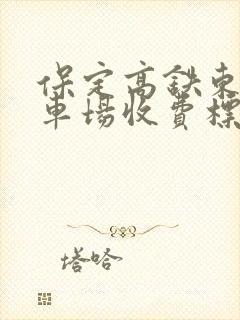 保定高鐵東
車場收費標
塔哈